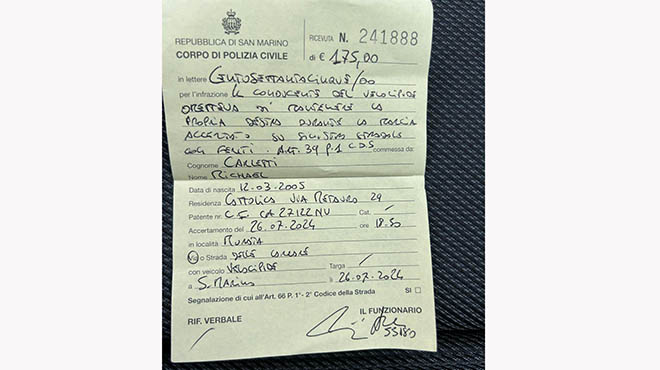 REPUBBLICA DI SAN MARINO
CORPO DI POLIZIA CIVILE
RICEVUTA N. 241888
di € 175,00
in lettere CENTOSETTANTACINQUE/00
per l'infrazione IL CONDUCENTE DEL VELOCIPIDE
OMETTEVA DI MANTENERE LA
PROPRIA DESTRA DURANTE LA MARCIA
SU SINISTRO STRADALE
CON FERITI. ART. 39 P.1 C.D.S commessa da:
Cognome CARLETTI
Nome MICHAEL
Data di nascita 12.03.2005
Residenza CATTOLICA VIA METAURO 29
Patente nr. C.I. CA27122NU Cat. /
Accertamento del 26.07.2024 ore 18.50
in località MURATA
Via o Strada DELLE CARRARE
con veicolo VELOCIPIDE Targa /
a S. MARINO lì 26.07.2024
Segnalazione di cui all'Art. 66 P. 1°- 2° Codice della Strada SI
RIF. VERBALE IL FUNZIONARIO
/